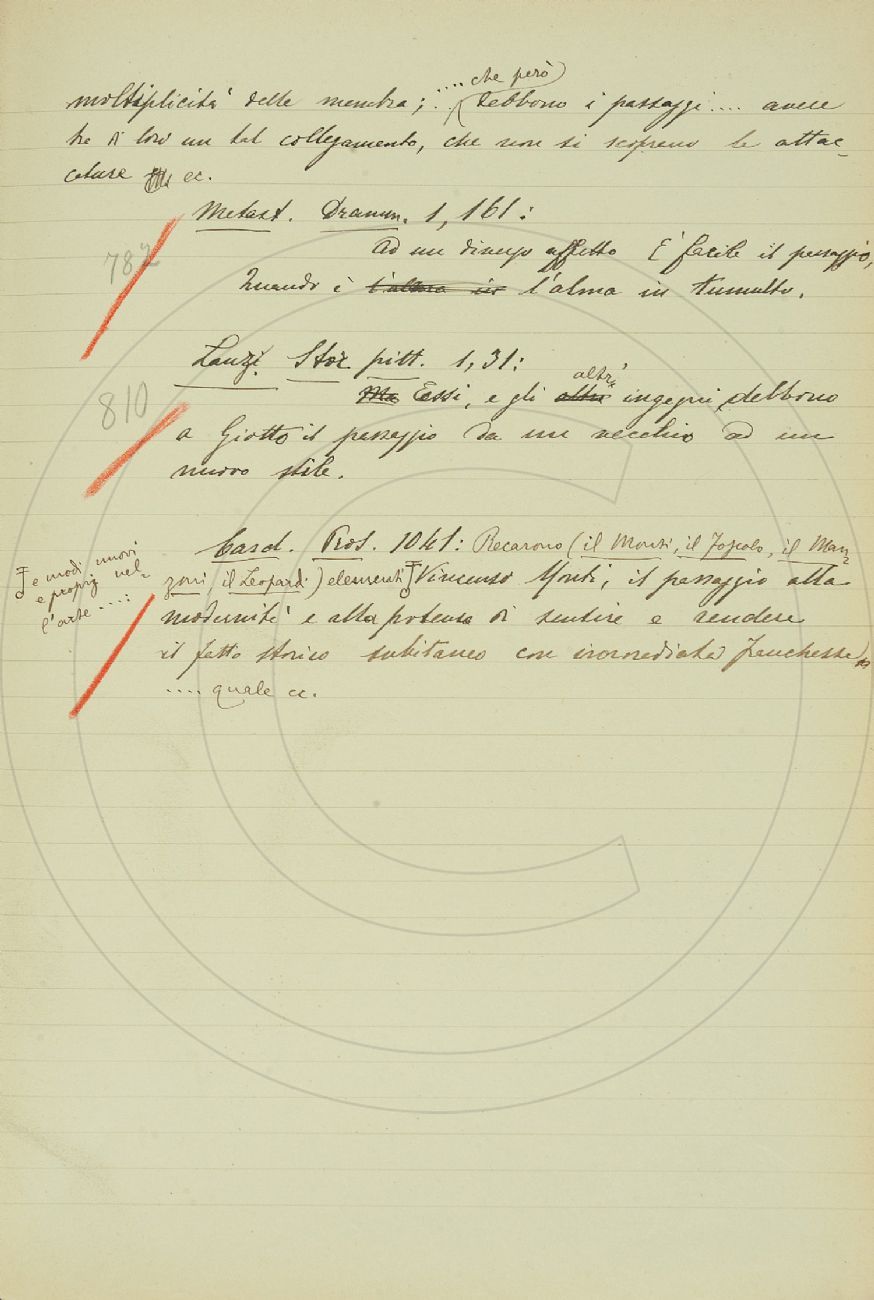 .... che però
moltiplicità delle membra; .... debbono i passaggi .... avere
tra di loro un tal collegamento, che non si scoprano le attac-
cature ec.
Metast. Dramm. 1, 161:
782
Ad un diverso affetto È facile il passaggio,
Quando è l'altra in l'alma in tumulto.
Lanzi Stor. pitt. 1, 31:
altri
810
Ma Essi, e gli altri ingegni debbono
a Giotto il passaggio da un vecchio ad un
nuovo stile.
Card. Pros. 1041: Recarono (il Monti, il Foscolo, il Man-
zoni, il Leopardi) elementi Vincenzo Monti, il passaggio alla
e modi nuovi
e proprj nel-
l'arte ....:
modernità e alla potenza di sentire e rendere
il fatto storico subitaneo con immediata franchezza
.... quale ec.